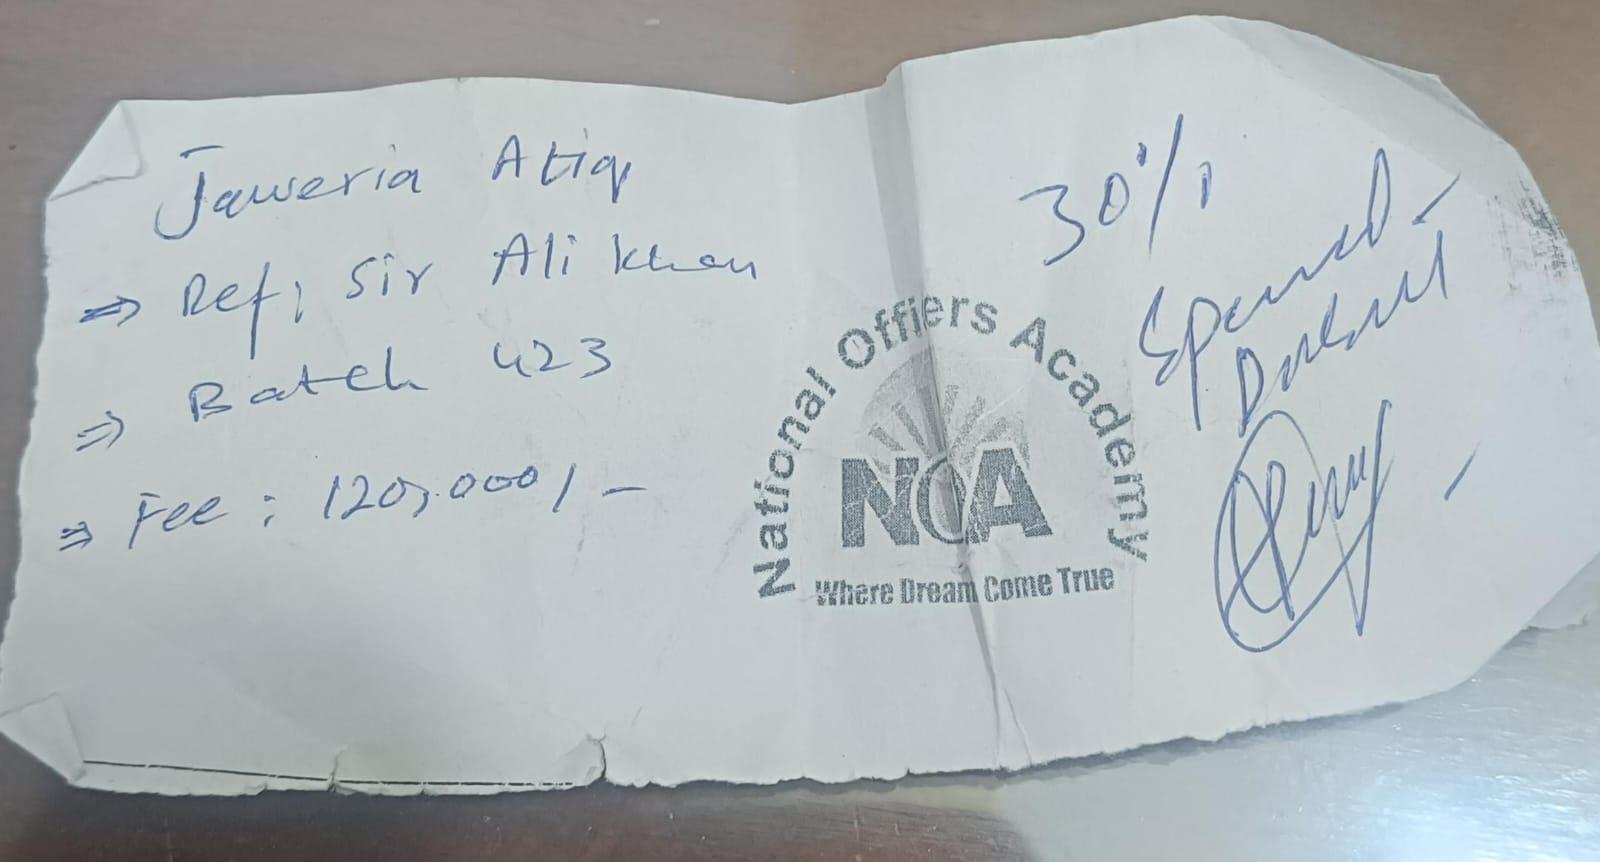 Jaweria Atiq
⇒ Ref; Sir Ali Khan
⇒ Batch 423
⇒ Fee : 120,000/-
National Offiers Academy
NOA
Where Dream Come True
30%